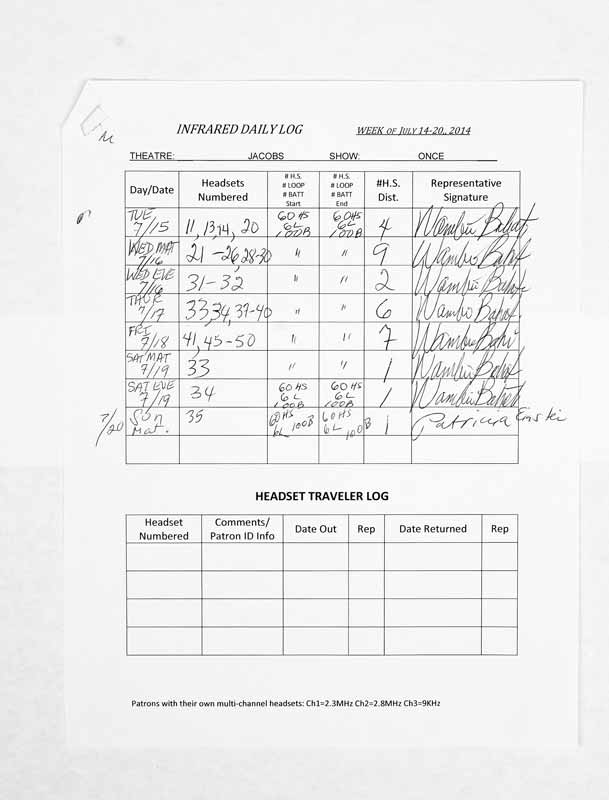 INFRARED DAILY LOG WEEK OF JULY 14-20,, 2014
THEATRE: JACOBS SHOW: ONCE
Day/Date Headsets Numbered # H.S. # LOOP # BATT Start # H.S. # LOOP # BATT End #H.S. Dist. Representative Signature
TUE 7/15 11, 13, 14, 20 60 HS 6L 100B 60HS 6L 100B 4 Wambui Bahati
WED MAT 7/16 21-26, 28-30 " " 9 Wambui Bahati
WED EVE 7/16 31-32 " " 2 Wambui Bahati
THUR 7/17 33, 34, 37-40 " " 6 Wambui Bahati
FRI 7/18 41, 45-50 " " 7 Wambui Bahati
SAT MAT 7/19 33 " " 1 Wambui Bahati
SAT EVE 7/19 34 60 HS 6L 100B 60 HS 6L 100B 1 Wambui Bahati
7/20 Sun Mat. 35 60 HS 6L 100B 60 HS 6L 100B 1 Patricia
HEADSET TRAVELER LOG
Headset Numbered Comments/ Patron ID Info Date Out Rep Date Returned Rep
Patrons with their own multi-channel headsets: Ch1=2.3MHz Ch2=2.8MHz Ch3=9KHz